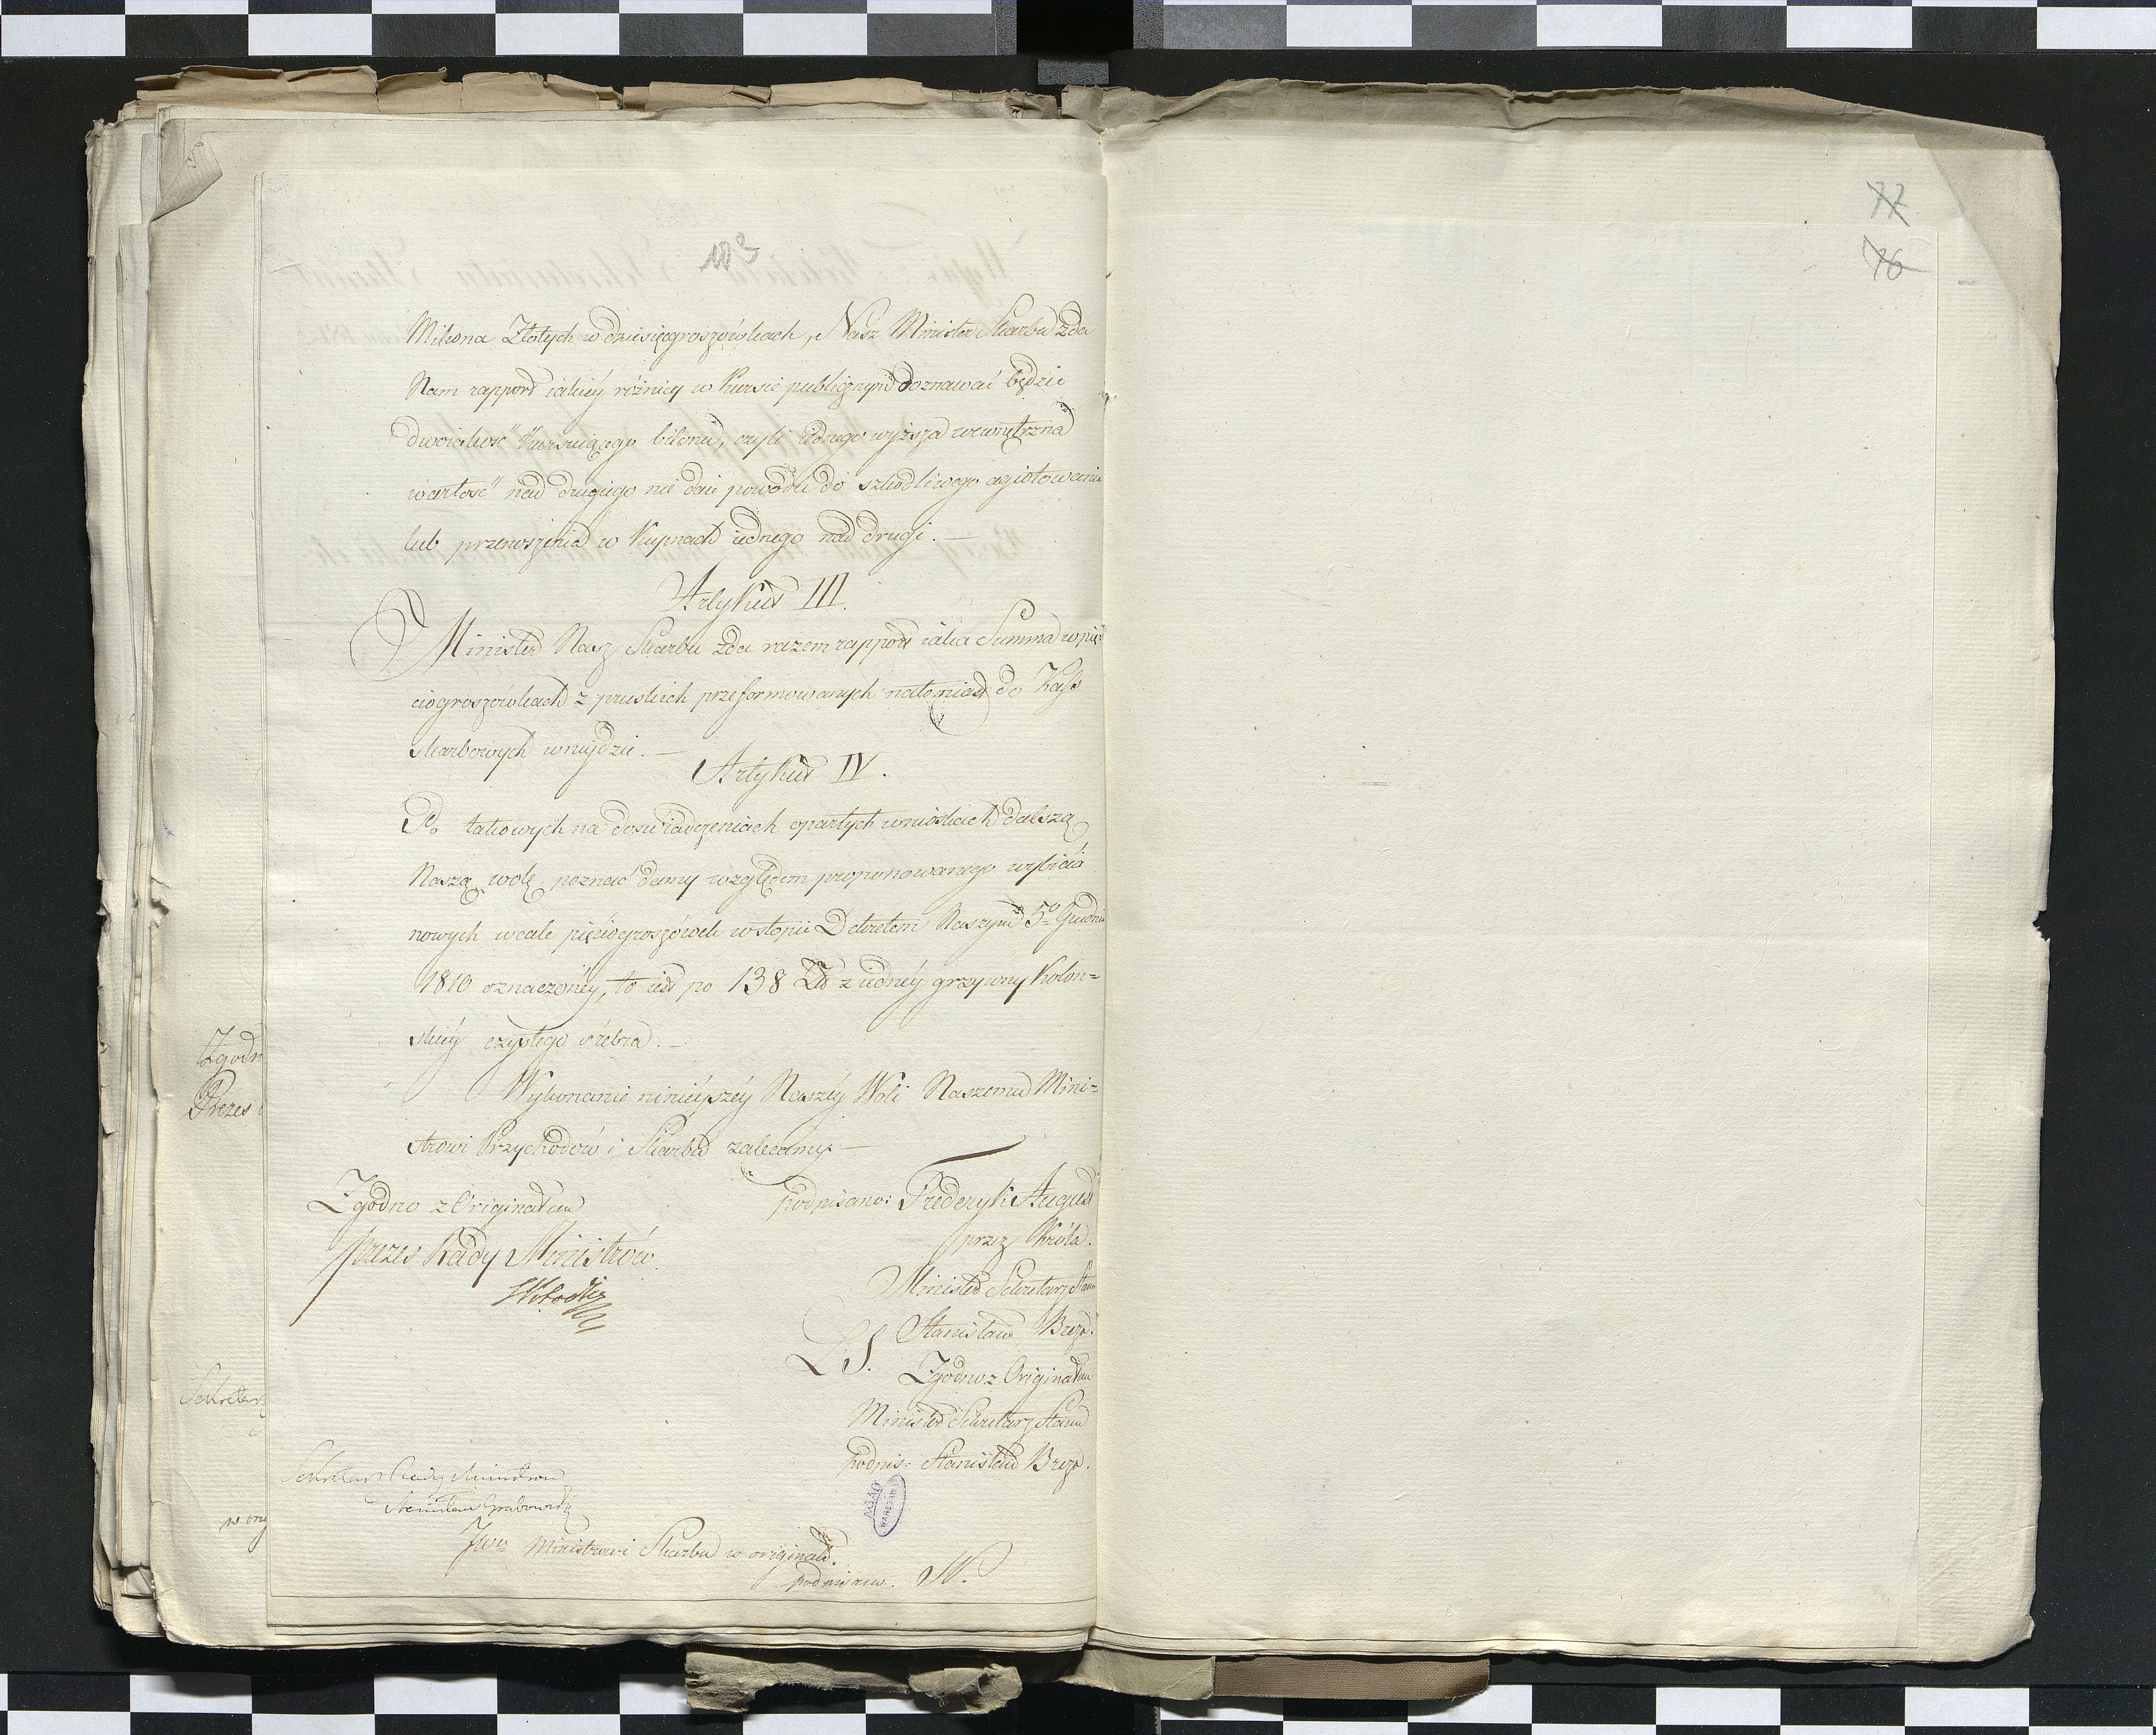 103
Miliona Złotych w dziesięciogroszówkach, Nasz Minister Skarbu zda
Nam rapport iakiéy różnicy w Kursie publicznym doznawać będzie
dwoiakość kursuiącego bilonu, czyli iednego wyższa wewnętrzna
wartość nad drugiego nie daie powodu do szkodliwego agiotowania
lub przenoszenia w Kupnach iednego nad drugi. —
Artykuł III.
Minister Nasz Skarbu zda razem rapport iaka Summa w pię=
ciogroszówkach z pruskich przeformowanych natomiast do Kass
skarbowych wnijdzie. —
Artykuł IV.
Po takowych na doświadczeniach opartych wnioskach dalszą
Naszą wolę poznać damy względem proponowanego wybicia
nowych wcale pięciogroszówek w stopie Dekretem Naszym 5º Grudnia
1810 oznaczonéy, to iest po 138 Zł z iednéy grzywny Kolon=
skiéy czystego srebra. —
Wykonanie ninieyszéy Naszéy Woli Naszemu Mini=
strowi Przychodów i Skarbu zalecamy. —
Zgodno z Originałem
podpisano: Frederyk August
Prezes Rady Ministrów
przez Króla.
Minister Sekretarz Stanu
Stanisław Breza.
L.S.
Zgodno z Originałem
Minister Sekretarz Stanu
podpis: Stanisław Breza.
Sekretarz Rady Ministrów
Stanisław Grabowski
Jwu Ministrowi Skarbu w originale.
podpisano.
Zgodn
Prezes
Sekretarz
w ory
AGAD
WARSZAWA
77
76